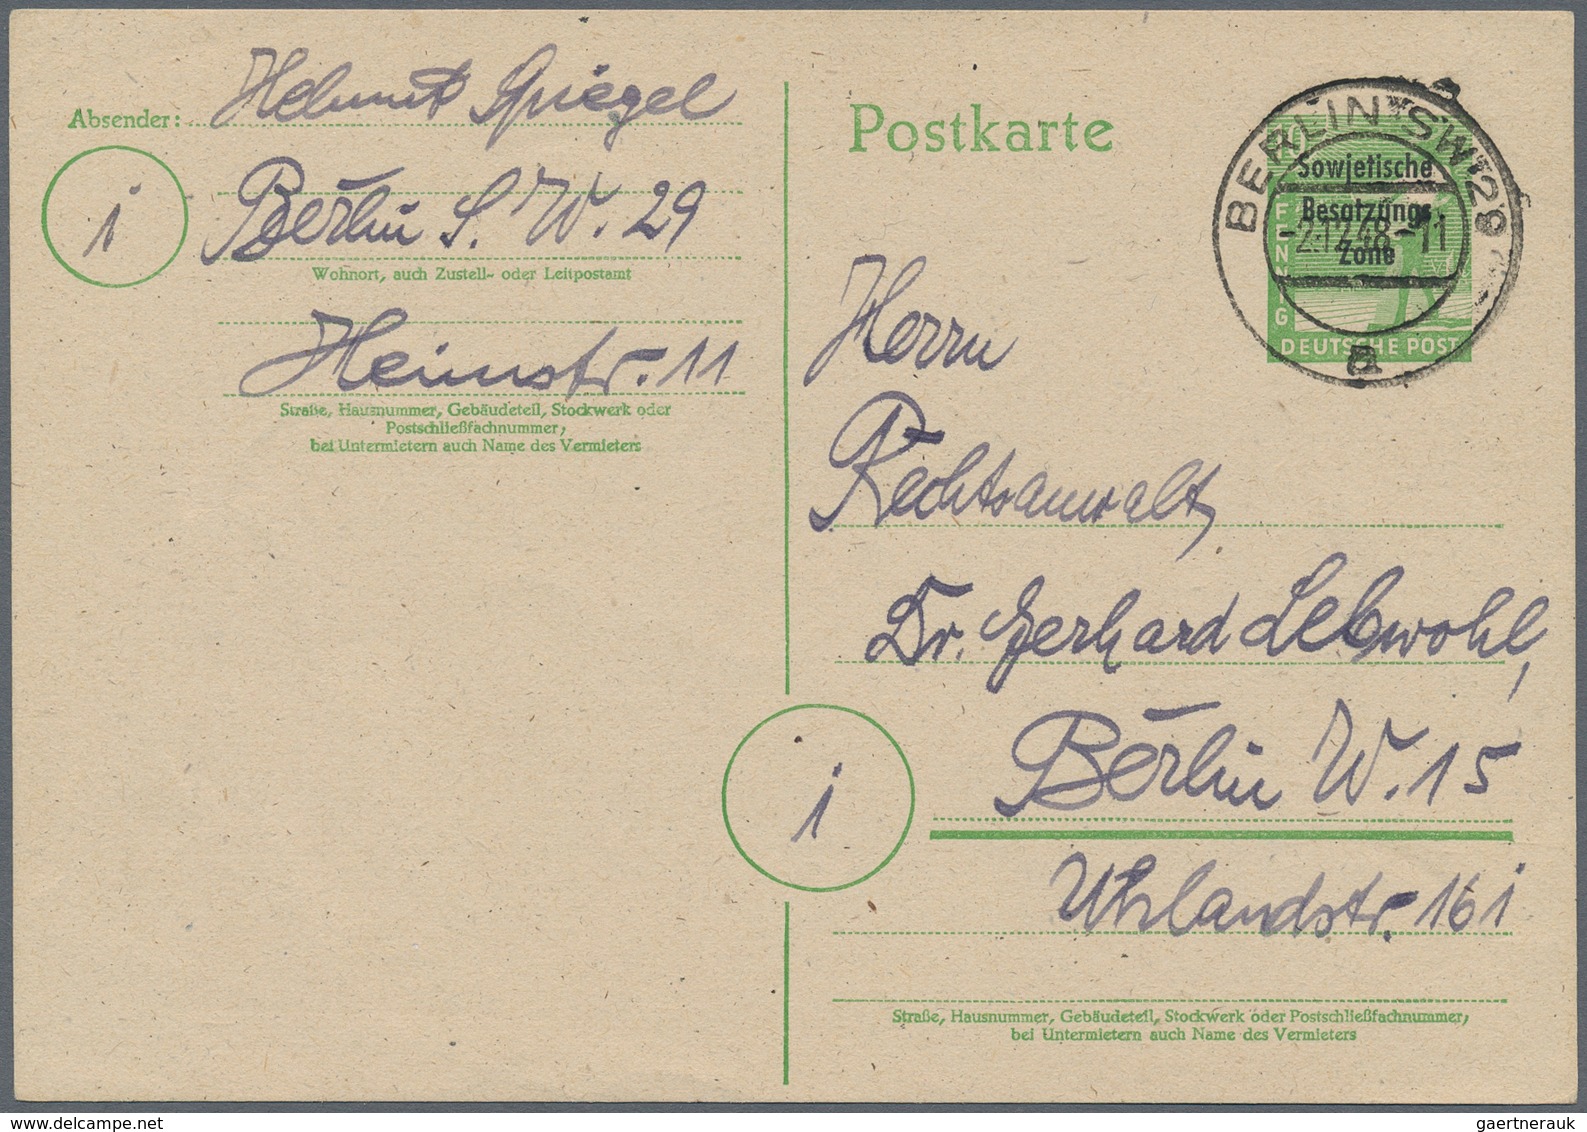 Absender: Helmut Spiegel
i
Berlin S.W. 29
Wohnort, auch Zustell- oder Leitpostamt
Heimstr. 11
Straße, Hausnummer, Gebäudeteil, Stockwerk oder
Postschließfachnummer;
bei Untermietern auch Name des Vermieters
Postkarte
BERLIN SW
Sowjetische
Besatzungs
Zone
-2.12.48.-11
a
PFENNIG
DEUTSCHE POST
Herrn
Rechtsanwalt,
Dr. Gerhard Lebwohl,
i
Berlin W. 15
Uhlandstr. 161
Straße, Hausnummer, Gebäudeteil, Stockwerk oder Postschließfachnummer;
bei Untermietern auch Name des Vermieters
gaertnerauk